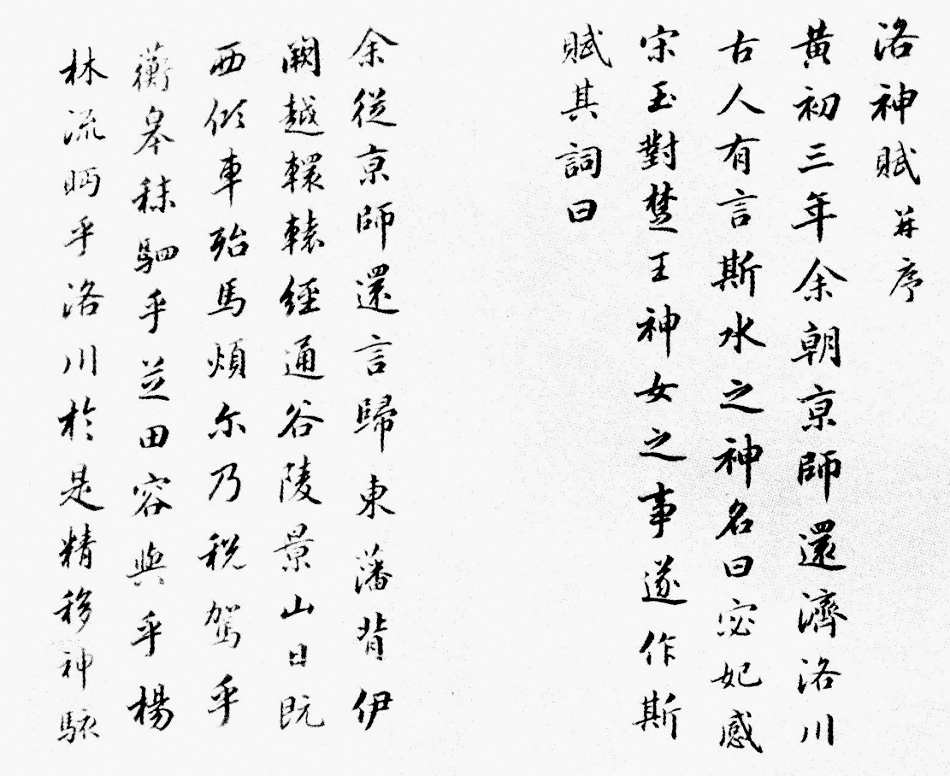 洛神賦并序
黃初三年余朝京師還濟洛川
古人有言斯水之神名曰宓妃感
宋玉對楚王神女之事遂作斯
賦其詞曰
余從京師還言歸東藩背伊
闕越轘轅經通谷陵景山日既
西傾車殆馬煩尔乃税駕乎
蘅皋秣駟乎芝田容與乎楊
林流眄乎洛川於是精移神駭